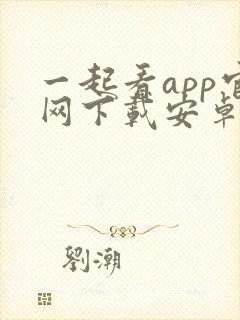 一起看app官
网下載安卓
劉潮